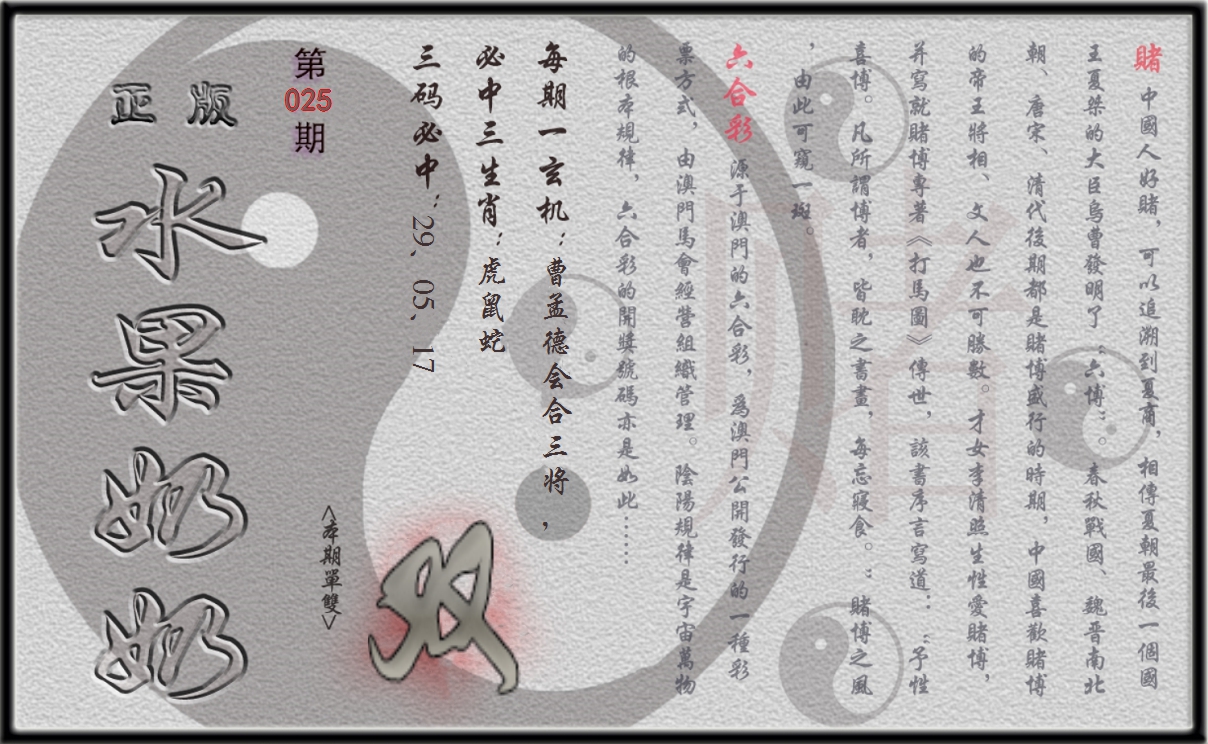 賭 中國人好賭，可以追溯到夏商，相傳夏朝最後一個國
王夏桀的大臣烏曹發明了“六博”。春秋戰國、魏晋南北
朝、唐宋、清代後期都是賭博盛行的時期，中國喜歡賭博
的帝王將相、文人也不可勝數。才女李清照生性愛賭博，
并寫就賭博專著《打馬圖》傳世，該書序言寫道：“予性
喜博。凡所謂博者，皆耽之書畫，每忘寢食。：賭博之風
，由此可窺一斑。
六合彩 源于澳門的六合彩，爲澳門公開發行的一種彩
票方式，由澳門馬會經營組織管理。陰陽規律是宇宙萬物
的根本規律，六合彩的開獎號碼亦是如此……
每期一玄机：曹孟德会合三将，
必中三生肖：虎鼠蛇
三码必中：29、05、17
双
<本期單雙>
第
025
期
正版
水果奶奶
赌